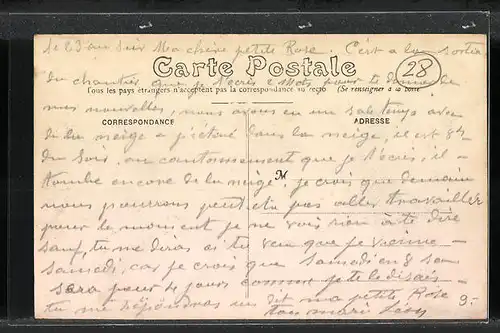 le 23 au soir Ma chère petite Rose. C'est a la sortie
du chantier que je t'ecris 2 mots pour te donner de
Carte Postale
28
Tous les pays étrangers n'acceptent pas la correspondance au recto (Se renseigner à la poste)
mes nouvelles, nous avons eu un sale temps avec
CORRESPONDANCE
ADRESSE
de la neige dans la neige, il est 8h
du soir, au cantonnement que je t'ecris, il
M
tombe encore de la neige, je crois que demain
nous pourrons peut etre pas aller travailler
pour le moment, je ne vois rien à te dire
sauf, tu me diras si tu veux que je vienne
samedi, car je crois que samedi en 8 son
sera pour 4 jours comme je te le disais
tu me répondras dit ma petite Rose
ton mari
9.-